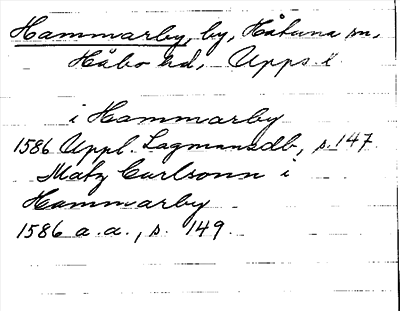 Hammarby, by, Håtuna sn,
Håbo hd, Upps. l.
i Hammarby
1586 Uppl. Lagmansdb, s. 147.
Matz Carlsonn i
Hammarby
1586 a.a., s. 149.